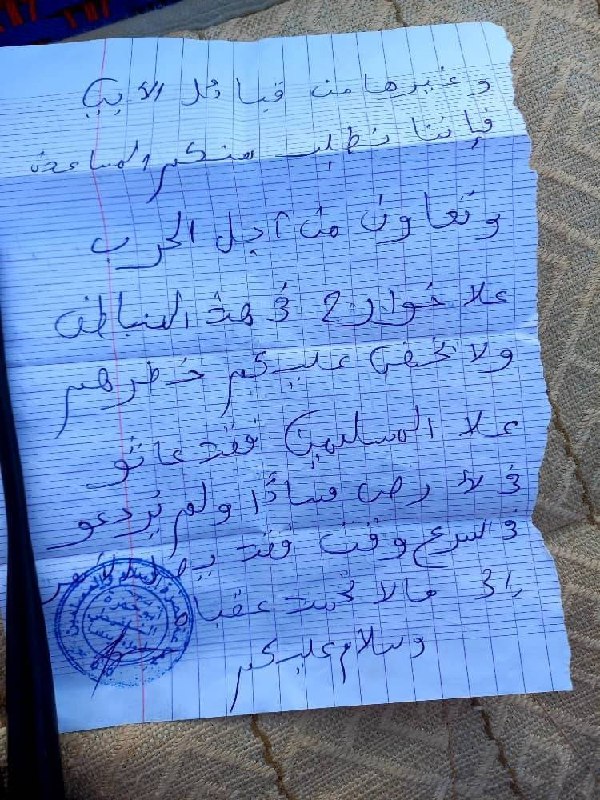 وغيرها من قبا ئل الأبيب
فإننا نطلب منكم المساعدة
وتعاون من آجل الحرب
علا خوارج في هذ المناطق
ولا يخفى عليكم خطرهم
علا المسلمين فقد عاثو
في لا رض فسادًا ولم يُردعو
في اسرع وقت فقد
إلى مالا تحمد عقبا
وسلام عليكم